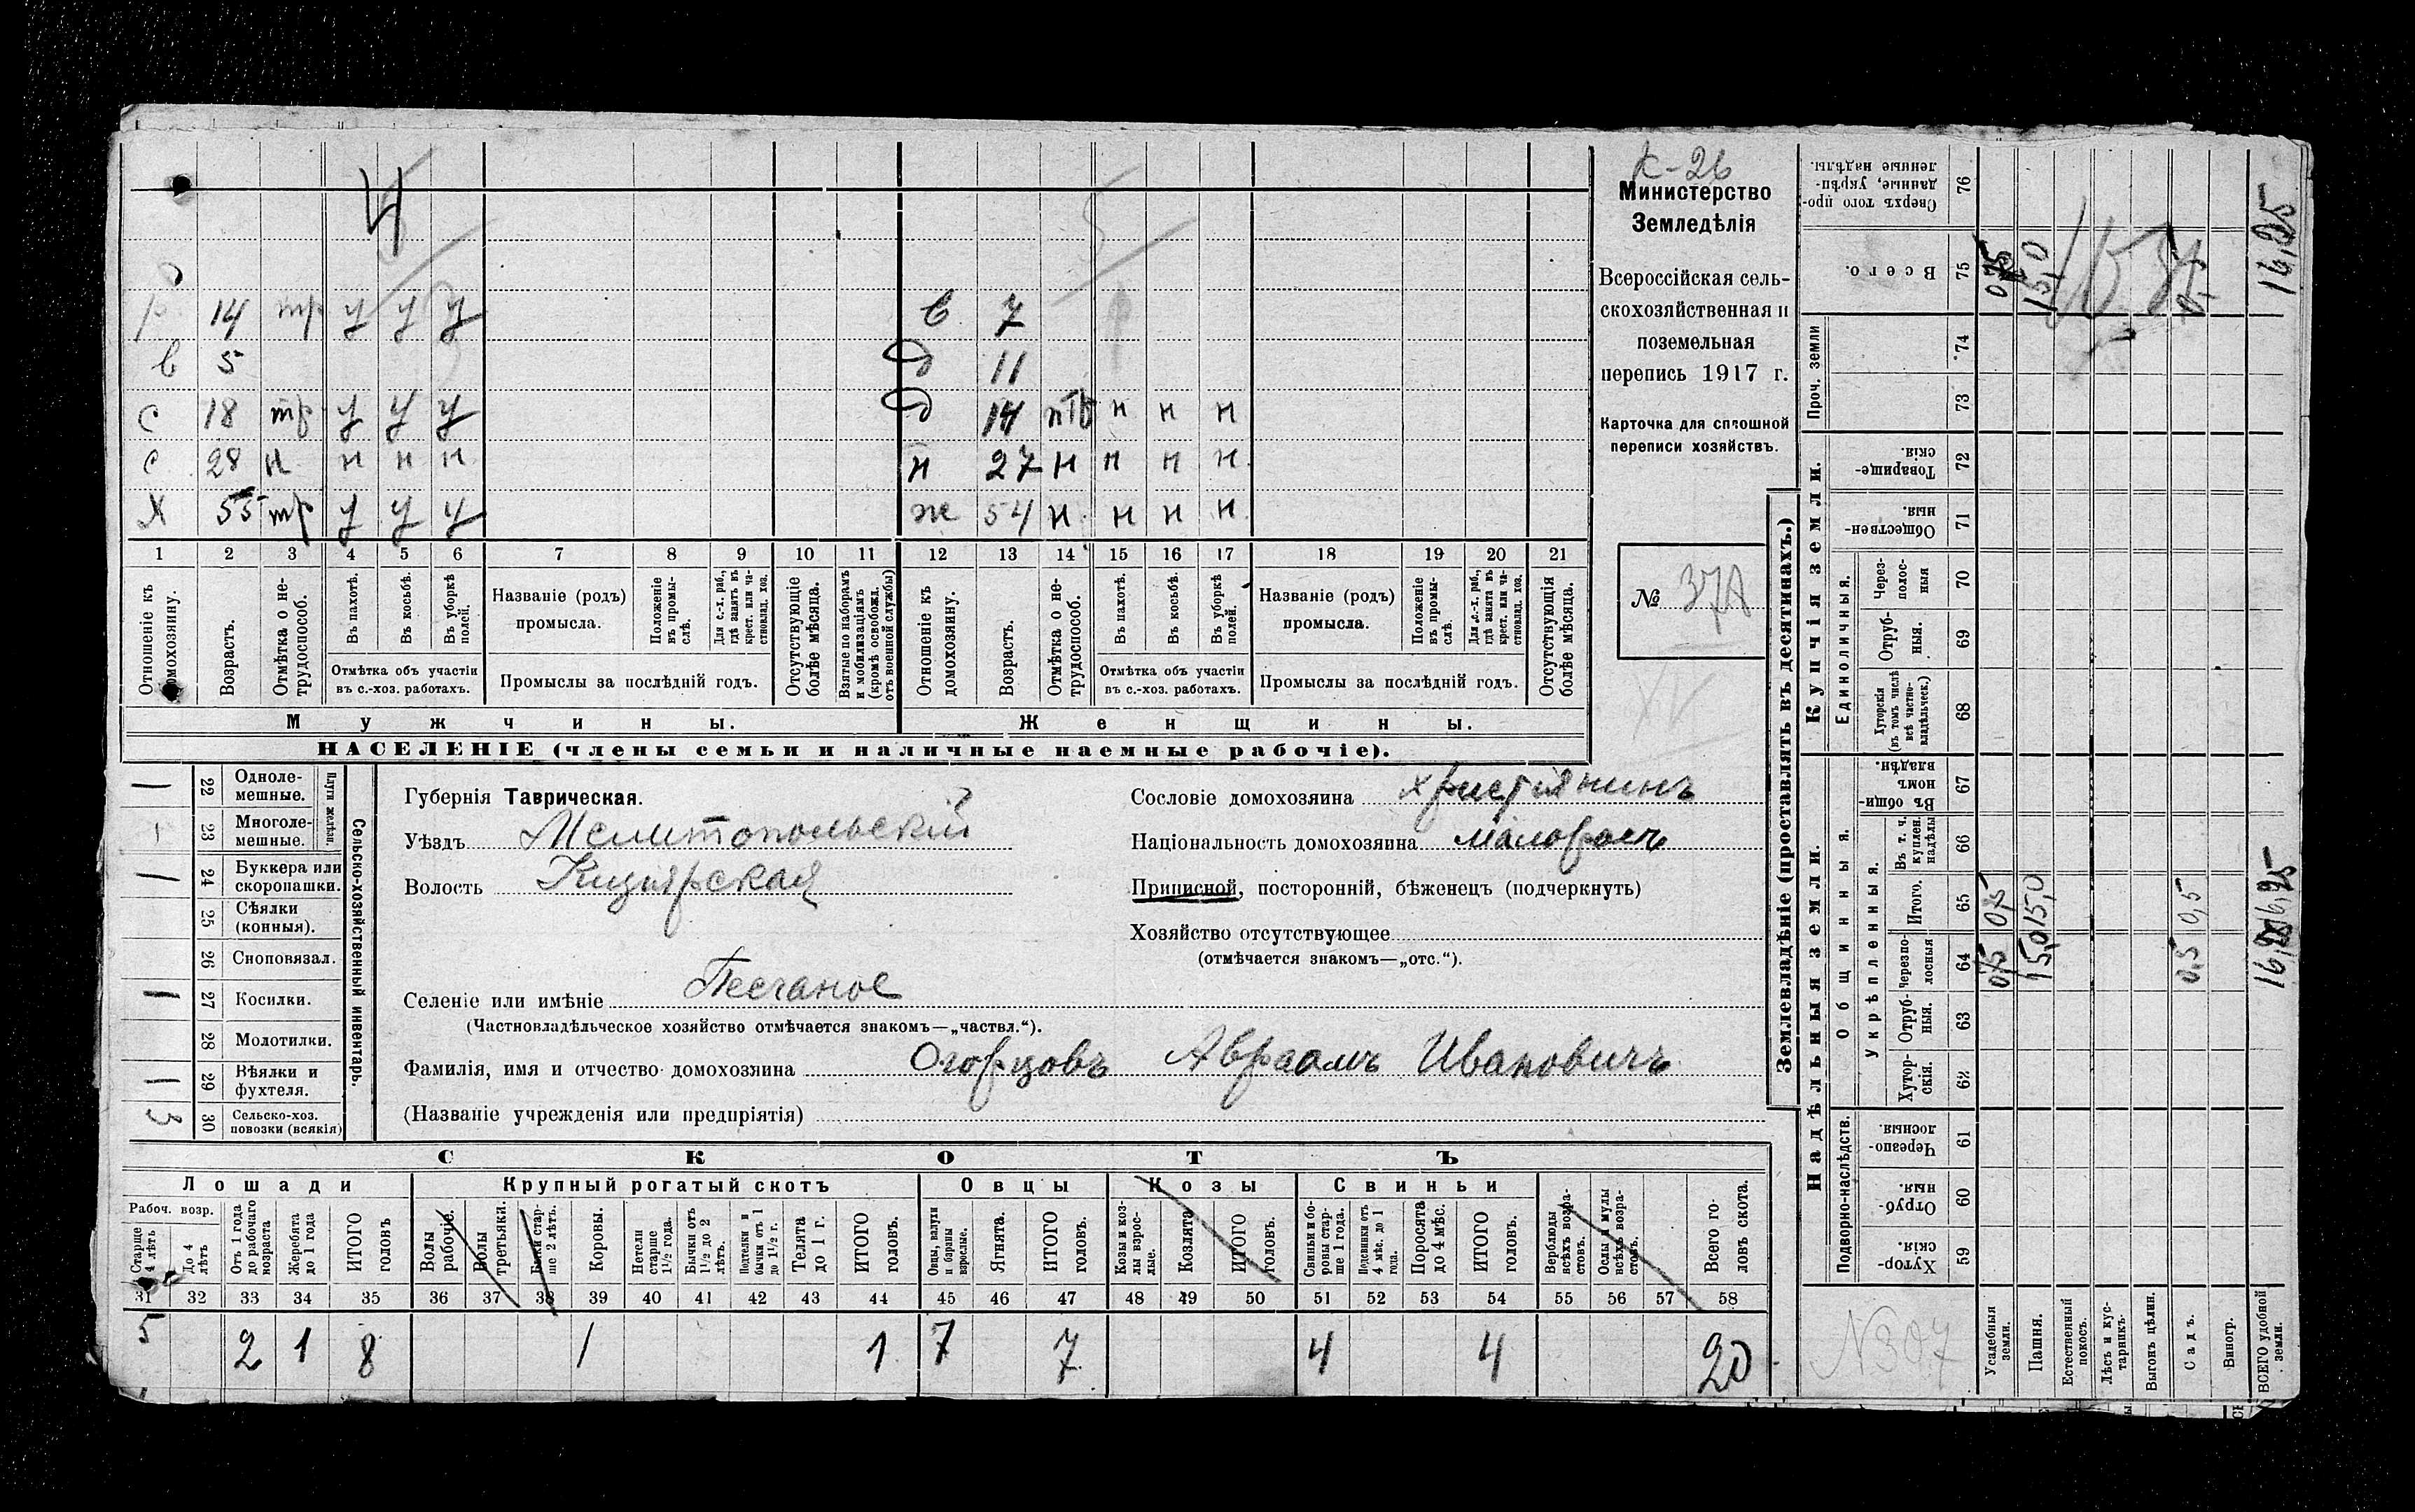 К-26
Министерство
Земледѣлія
Всероссійская сель-
скохозяйственная и
поземельная
перепись 1917 г.
Карточка для сплошной
переписи хозяйствъ.
№ 37А
XV
4
р 14 тр у у у
в 5
с 18 тр у у у
с 28 н н н н
х 55 тр у у у
в 7
д 11
д 14 н н н
н 27 н н н н
ж 54 н н н н
1 2 3 4 5 6 7 8 9 10 11 12 13 14 15 16 17 18 19 20 21
Отношеніе къ домохозяину.
Возрастъ.
Отмѣтка о не-
трудоспособ.
Въ пахотѣ.
Въ косьбѣ.
Въ уборкѣ
полей.
Отмѣтка объ участіи
въ с.-хоз. работахъ.
Названіе (родъ)
промысла.
Положеніе
въ промы-
слѣ.
Для с.-х. раб.,
гдѣ занятъ въ
крест. или ча-
стновлад. хоз.
Промыслы за послѣдній годъ.
Отсутствующіе
болѣе мѣсяца.
Взятые по наборамъ
и мобилизаціямъ
(кромѣ освобожд.
отъ военной службы)
Отношеніе къ
домохозяину.
Возрастъ.
Отмѣтка о не-
трудоспособ.
Въ пахотѣ.
Въ косьбѣ.
Въ уборкѣ
полей.
Отмѣтка объ участіи
въ с.-хоз. работахъ.
Названіе (родъ)
промысла.
Положеніе
въ промы-
слѣ.
Для с.-х. раб.,
гдѣ занята въ
крест. или ча-
стновлад. хоз.
Промыслы за послѣдній годъ.
Отсутствующія
болѣе мѣсяца.
Мужчины.
Женщины.
НАСЕЛЕНІЕ (члены семьи и наличные наемные рабочіе).
Сельско-хозяйственный инвентарь.
Плуги желѣзн.
1 22 Одноле-
мешные.
1 23 Многоле-
мешные.
1 24 Буккера или
скоропашки.
25 Сѣялки
(конныя).
26 Сноповязал.
1 27 Косилки.
28 Молотилки.
1 29 Вѣялки и
фухтеля.
3 30 Сельско-хоз.
повозки (всякія)
Губернія Таврическая.
Уѣздъ Мелитопольскій
Волость Кизіярская
Сословіе домохозяина христіянинъ
Національность домохозяина малоросъ
Приписной, посторонній, бѣженецъ (подчеркнуть)
Хозяйство отсутствующее
(отмѣчается знакомъ—„отс.“).
Селеніе или имѣніе Песчаное
(Частновладѣльческое хозяйство отмѣчается знакомъ—„частвл.“).
Фамилія, имя и отчество домохозяина Огорцовъ Авраамъ Ивановичъ
(Названіе учрежденія или предпріятія)
СКОТЪ
Лошади
Крупный рогатый скотъ
Овцы
Козы
Свиньи
Рабоч. возр.
Старше
4 лѣтъ
До 4
лѣтъ
Отъ 1 года
до рабочаго
возраста
Жеребята
до 1 года
ИТОГО
головъ
Волы
рабочіе.
Волы
третьяки.
Быки стар-
ше 2 лѣтъ.
Коровы.
Нетели
старше
1½ года.
Бычки отъ
1½ до 2
лѣтъ.
Подтелки и
бычки отъ 1
до 1½ г.
Телята
до 1 г.
ИТОГО
головъ.
Овцы, валухи
и бараны
взрослые.
Ягнята.
ИТОГО
головъ.
Козы и коз-
лы взрос-
лые.
Козлята
ИТОГО
головъ.
Свиньи и бо-
ровы стар-
ше 1 года.
Подсвинки отъ
4 мѣс. до 1
года.
Поросята
до 4 мѣс.
ИТОГО
головъ.
Верблюды
всѣхъ возра-
стовъ.
Ослы и мулы
всѣхъ возра-
стовъ.
Всего го-
ловъ скота.
31 32 33 34 35 36 37 38 39 40 41 42 43 44 45 46 47 48 49 50 51 52 53 54 55 56 57 58
5 2 1 8 1 1 7 7 4 4 20
Землевладѣніе (проставлять въ десятинахъ.)
Надѣльныя земли.
Купчія земли.
Проч. земли
Подворно-наслѣдств.
Общинныя.
Укрѣпленныя.
Единоличныя.
59 Хутор-
скія.
60 Отруб-
ныя.
61 Черезпо-
лосныя.
62 Хутор-
скія.
63 Отруб-
ныя.
64 Черезпо-
лосныя
65 Итого.
66 Въ т. ч.
куплен.
надѣлы
67 Въ общи-
номъ
владѣн.
68 Хуторскія
(въ томъ числѣ
всѣ частно-
владѣльческ.)
69 Отруб-
ныя.
70 Через-
полос-
ныя
71 Обществен-
ныя.
72 Товарище-
скія.
73
74
75 Всего.
76 Сверхъ того про-
данные, укрѣп-
ленные надѣлы.
№307
Усадебныя
земли.
Пашня. 15,0 15,0 15,0
Естественный
покосъ.
Лѣсъ и кус-
тарникъ.
Выгонъ цѣлин.
Садъ. 0,5 0,5
Виногр.
ВСЕГО удобной
земли. 16,25 16,25